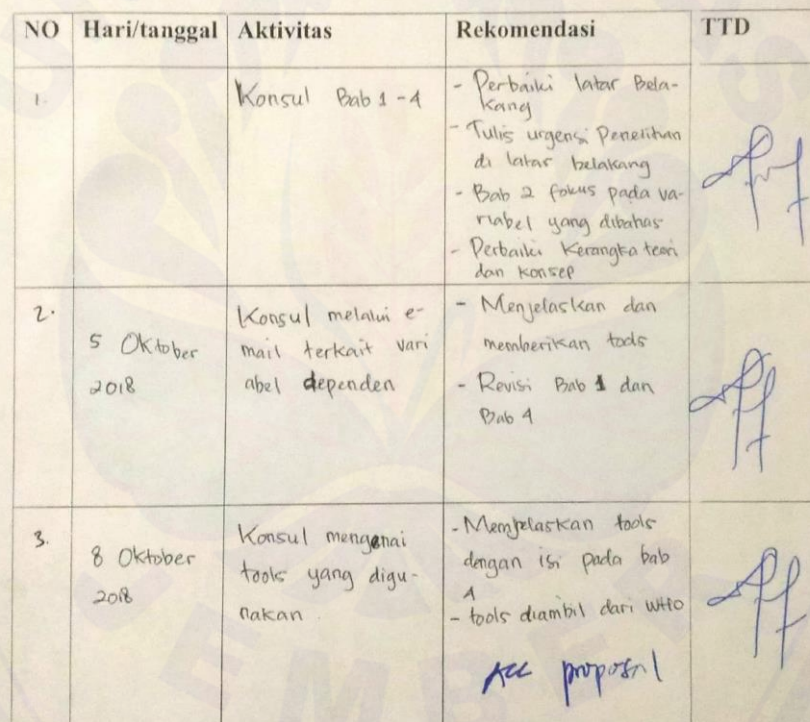 NO Hari/tanggal Aktivitas Rekomendasi TTD
1.
Konsul Bab 1-4
- Perbaiki latar Bela-
kang
- Tulis urgensi Penelitian
di latar belakang
- Bab 2 fokus pada va-
riabel yang dibahas
- Perbaiki Kerangka teori
dan konsep
2.
5 Oktober
2018
Konsul melalui e-
mail terkait vari
abel dependen
- Menjelaskan dan
memberikan tools
- Revisi Bab 1 dan
Bab 4
3.
8 Oktober
2018
Konsul mengenai
tools yang digu-
nakan
- Menjelaskan tools
dengan isi pada bab
4
- tools diambil dari WHO
ACC proposal
JEMBER